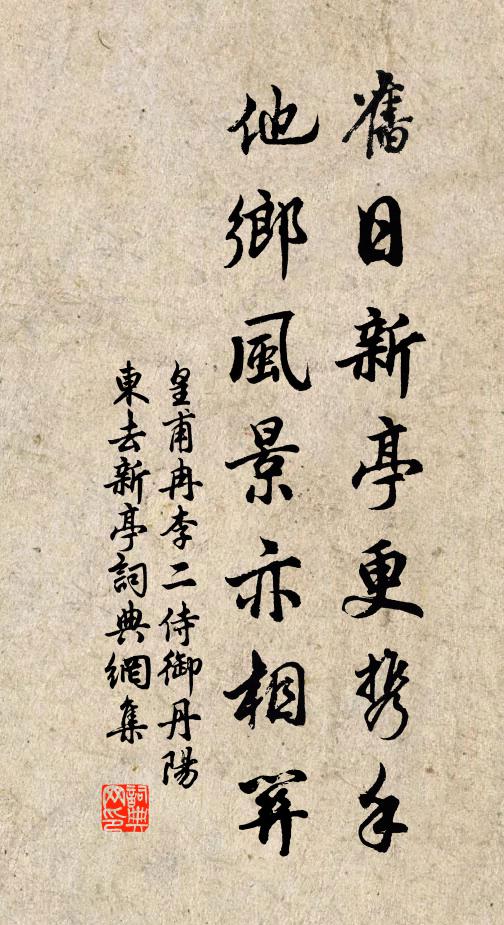 舊日新亭更携手
他鄉風景亦相異
皇甫冉李二侍御丹陽
東去新亭詞典網集
詞典
网印